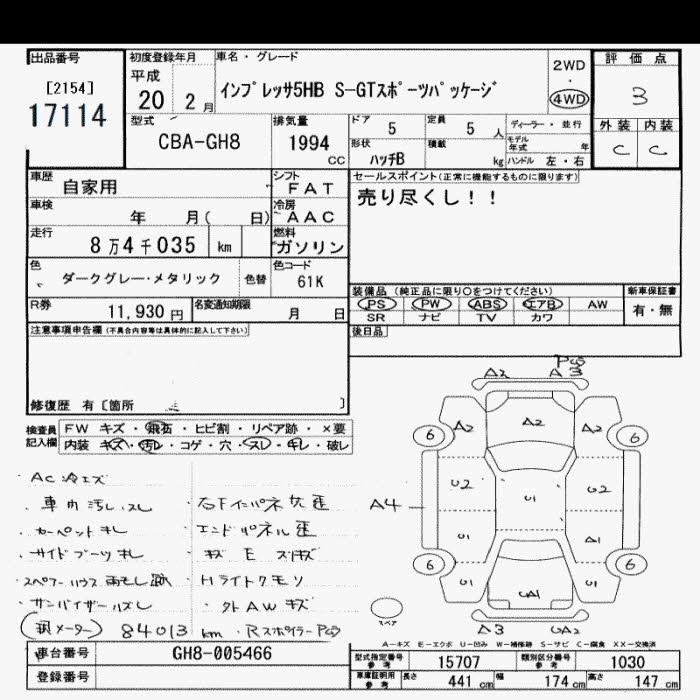 出品番号
[2154]
17114
初度登録年月
平成
20 2月
車名・グレード
インプレッサ5HB S-GTスポーツパッケージ
2WD
・
4WD
評価点
3
外装 内装
C C
型式
CBA-GH8
排気量
1994
CC
ドア 5
定員 5 人
形状
ハッチB
積載
kg
ディーラー・並行
モデル年式 年
ハンドル 左・右
車歴
自家用
シフト
FAT
車検
年 月( 日)
冷房
AAC
走行
8万4千035 km
燃料
ガソリン
色
ダークグレー・メタリック
色替
色コード
61K
R券
11,930円
名変通知期限
月 日
セールスポイント(正常に機能するものに限ります)
売り尽くし！！
装備品 (純正品に限り〇をつけてください)
PS PW ABS エアB AW
SR ナビ TV カワ
新車保証書
有・無
後日品
注意事項申告欄 (不具合内容等は具体的に記入して下さい)
修復歴 有〔箇所 〕
検査員記入欄
FW キズ・飛石・ヒビ割・リペア跡・×要
内装 キズ・汚レ・コゲ・穴・スレ・キレ・破レ
・車内汚レ、スレ
・カーペットキレ
・サイドブーツキレ
・サンバイザーハズレ
・エンドパネル歪
・Hライトクモリ
・外AWキズ
(現メーター) 84013km
・Rスポイラー
A2 A3
A2 A2 A2
6 6
U2 U1 U2
A4
U1 A1
6 6
U1 U1
A3
スペア
A-キズ E-エクボ U-凹み W-補修跡 S-サビ C-腐食 XX-交換済
車台番号
GH8-005466
登録番号
型式指定番号 参考
15707
類別区分番号 参考
1030
車庫証明用 参考
長さ 441 cm 幅 174 cm 高さ 147 cm